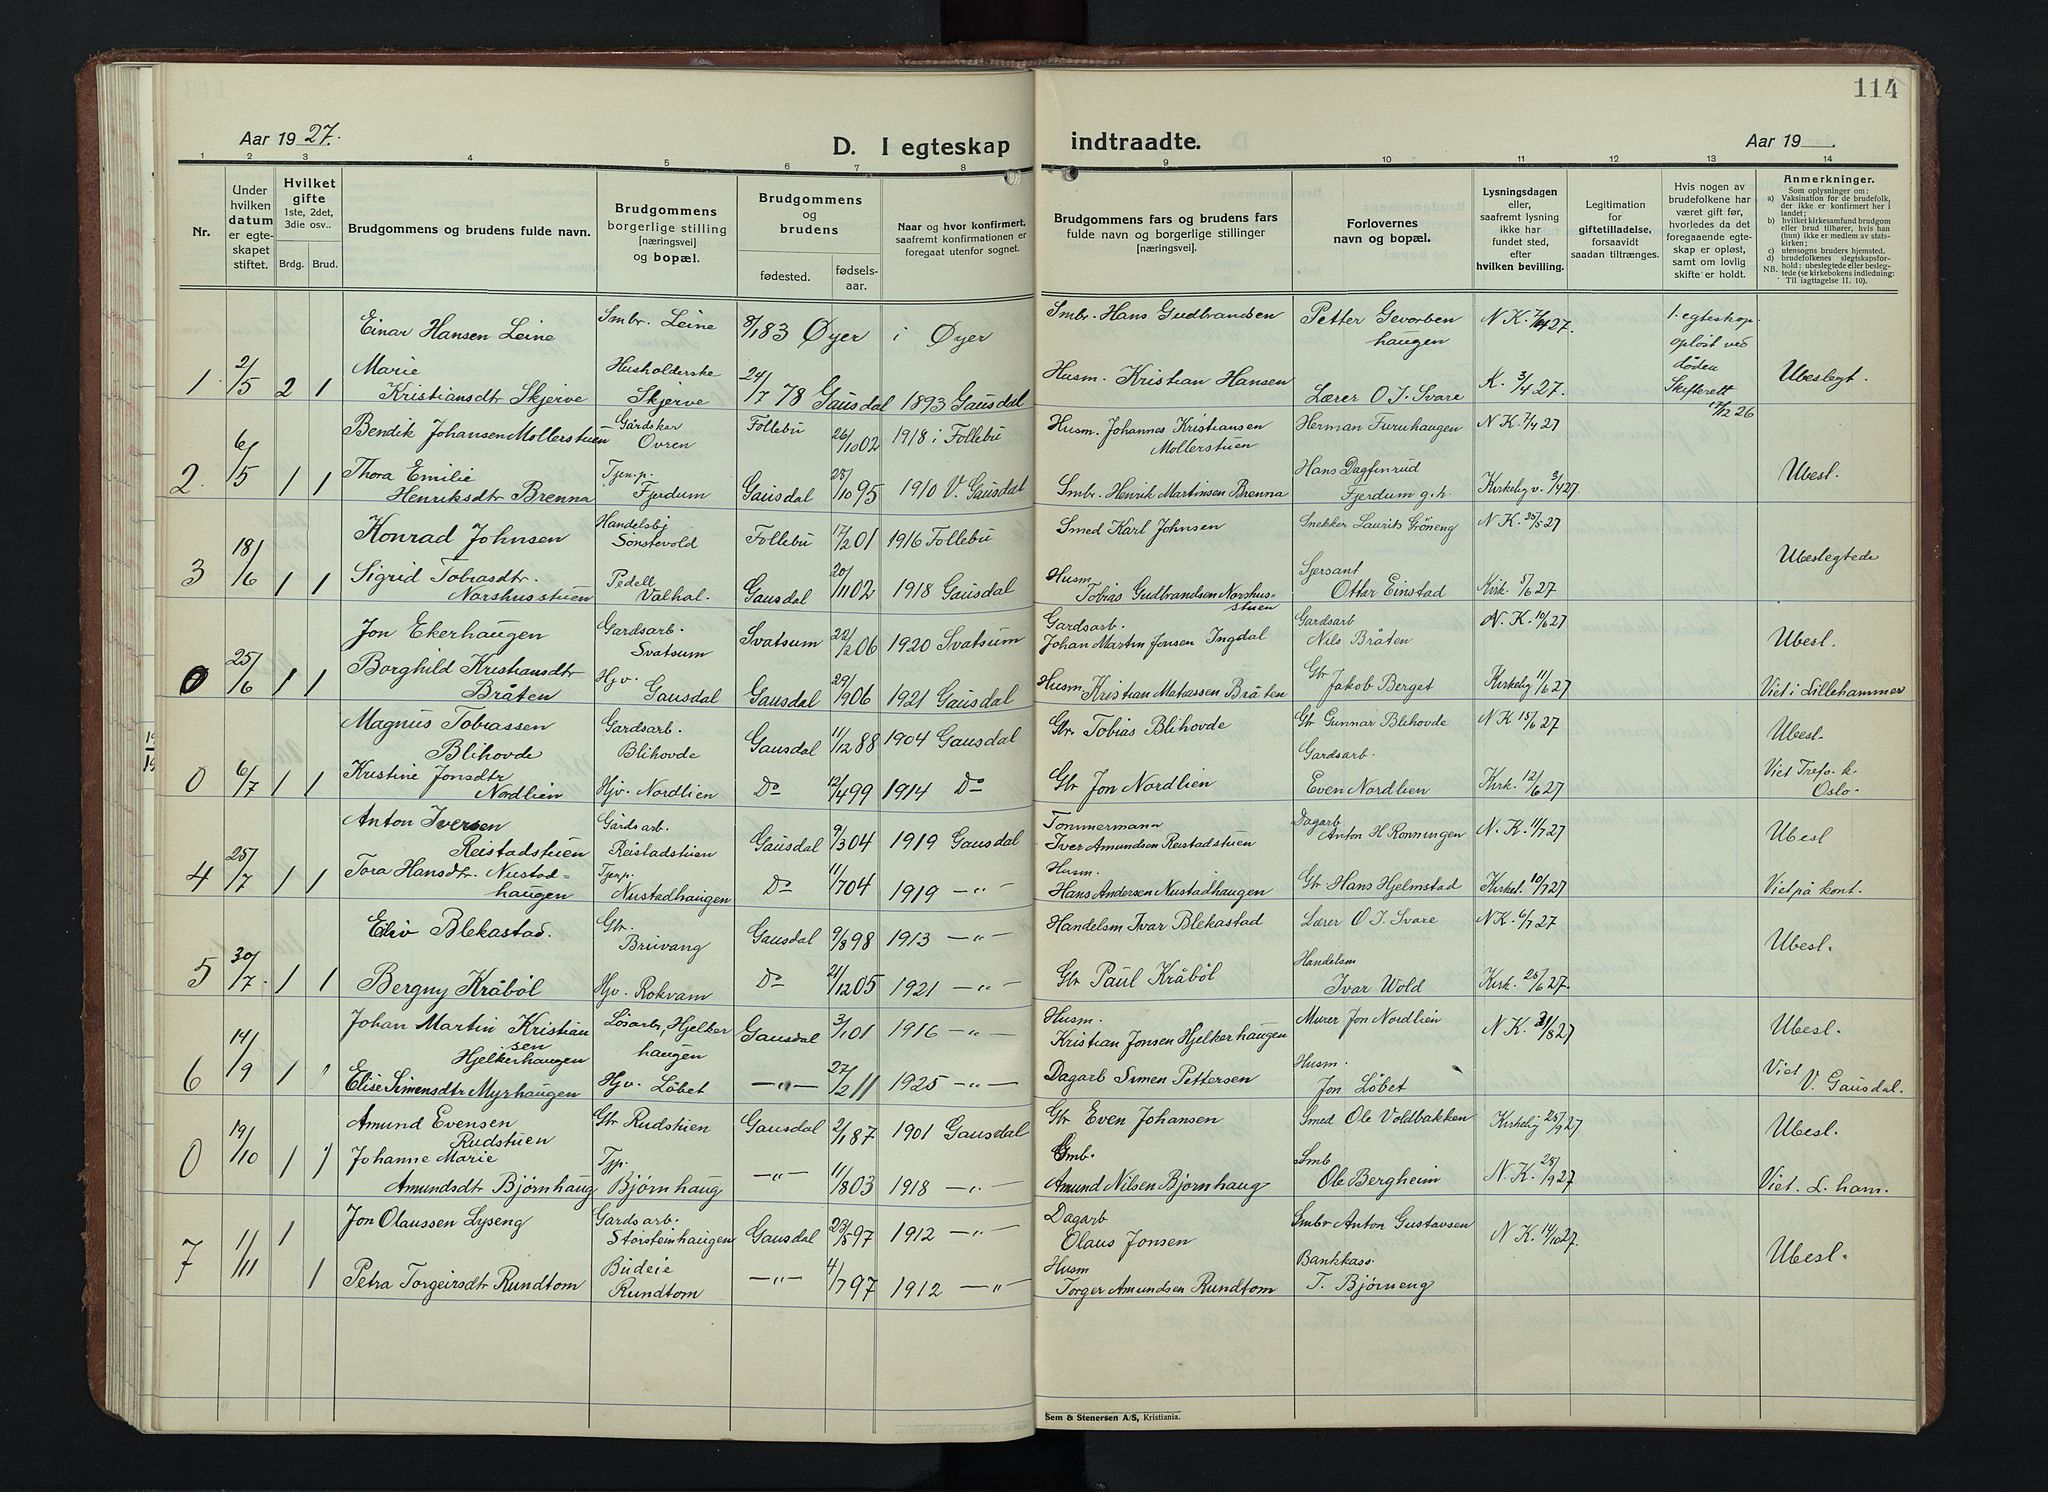 114
Aar 1927.
D. I egteskap
indtraadte.
Aar 19
1 2 3 4 5 6 7 8 9 10 11 12 13 14
Nr.
Under hvilken datum er egteskapet stiftet.
Hvilket gifte 1ste, 2det, 3die osv..
Brdg. Brud.
Brudgommens og brudens fulde navn.
Brudgommens borgerlige stilling [næringsvei] og bopæl.
Brudgommens og brudens
fødested. fødsels-aar.
Naar og hvor konfirmert, saafremt konfirmationen er foregaat utenfor sognet.
Brudgommens fars og brudens fars fulde navn og borgerlige stillinger [næringsvei].
Forlovernes navn og bopæl.
Lysningsdagen eller, saafremt lysning ikke har fundet sted, efter hvilken bevilling.
Legitimation for giftetilladelse, forsaavidt saadan tiltrænges.
Hvis nogen av brudefolkene har været gift før, hvorledes da det foregaaende egteskap er opløst, samt om lovlig skifte er holdt.
Anmerkninger.
Som oplysninger om:
a) Vaksination for de brudefolk, der ikke er konfirmert her i landet;
b) hvilket kirkesamfund brudgom eller brud tilhører, hvis han (hun) ikke er medlem av statskirken;
c) utensogns bruders hjemsted.
d) brudefolkenes slegtskapsforhold: ubeslegtede eller beslegtede (se kirkebokens indledning: Til Iagttagelse II. 10).
NB.
Einar Hansen Leine Smbr. Leine 8/1 83 Øyer i Øyer Smbr. Hans Gudbrandsen Petter Gevorbenhaugen N K. 7/4 27. 1. egteskop. opløst ved døden Skifterett 17/12 26
1. 2/5 2 1 Marie Kristiansdtr Skjerve Husholderske Skjerve 24/7 78 Gausdal 1893 Gausdal Husm. Kristian Hansen Lærer O. J. Svare K. 3/4 27. Ubeslegt.
Bendik Johansen Mollerstuen Gårdskar Ovren Follebu 26/10 02 1918 i Follebu Husm. Johannes Kristiansen Mollerstuen Herman Furuhaugen N K. 7/4 27
2. 6/5 1 1 Thora Emilie Henriksdtr Brenna Tjen.p. Fjerdum Gausdal 25/10 95 1910 V. Gausdal Smbr. Henrik Martinsen Brenna Hans Dagfinrud Fjerdum g.h. Kirkelig v. 3/4 27. Ubesl.
Konrad Johnsen Handelsbj Sønstevold Follebu 17/2 01 1916 Follebu Smed Karl Johnsen Snekker Laurits Grøneng N K. 25/5 27
3 18/6 1 1 Sigrid Tobiasdtr. Norshusstuen Pedell Valhal. Gausdal 20/11 02 1918 Gausdal Husm Tobias Gudbrandsen Norshusstuen Sjersant Ottar Einstad Kirk. 5/6 27 Ubeslegtede
Jon Ekerhaugen Gardsarb. Svatsum Svatsum 22/2 06 1920 Svatsum Gardsarb. Johan Martin Jensen Ingdal Gardsarb Nils Bråten N. K. 10/6 27 Ubesl.
0 25/6 1 1 Borghild Kristiansdtr Bråten Hjv. Gausdal Gausdal 29/9 06 1921 Gausdal Husm Kristian Matiassen Bråten Gbr Jakob Berget Kirkelig 11/6 27 Viet i Lillehammer
Magnus Tobiassen Blihovde Gardsarb. Blihovde Gausdal 11/12 88 1904 Gausdal Gbr. Tobias Blihovde Gbr Gunnar Blihovde N K 15/6 27 Ubesl.
0 6/7 1 1 Kristine Jonsdtr Nordlien Hjv. Nordlien Do 12/4 99 1914 Do Gbr Jon Nordlien Gardsarb. Even Nordlien Kirk. 12/6 27 Viet Trefo. k. Oslo.
Anton Iversen Reistadstuen Gårdsarb. Reistadstuen Gausdal 9/3 04 1919 Gausdal Tommermann Iver Amundsen Reistadstuen Dagarb Anton H Ronningen N. K. 11/7 27 Ubesl
4 25/7 1 1 Tora Hansdtr. Nustadhaugen Tjen.p. Nustadhaugen Do 11/7 04 1919 —"— Husm. Hans Andersen Nustadhaugen Gbr Hans Hjelmstad Kirkel. 10/7 27 Viet på kont.
Eliv Blekastad. Gbr. Bruvang Gausdal 9/8 98 1913 —"— Handelsm Ivar Blekastad Lærer O. J. Svare N K. 6/7 27 Ubesl.
5 30/7. 1 1 Bergny Kråbøl Hjv. Rokvam Do 21/12 05 1921 —"— Gbr Paul Kråbøl Handelsm Ivar Wold Kirk. 25/6 27.
Johan Martin Kristiansen Hjelkerhaugen Løsarb, Hjelkerhaugen Gausdal 3/1 01 1916 —"— Husm. Kristian Jonsen Hjelkerhaugen Murer Jon Nordlien N K. 31/8 27 Ubesl.
6 14/9 1 1 Elise Simensdtr Myrhaugen Hjv. Løbet —"— 27/2 11 1925 —"— Dagarb Simen Pettersen Husm. Jon Løbet Viet V. Gausdal.
Amund Evensen Rudstuen Gbr Rudstuen Gausdal 2/1 87 1901 Gausdal Gbr Even Johansen Smed Ole Voldbakken Kirkelig 25/9 27 Ubesl.
0 19/10 1 1 Johanne Marie Amundsdtr Bjørnhaug Tjp. Bjørnhaug —"— 11/8 03 1918 —"— Smb. Amund Nilsen Bjørnhaug Smb Ole Bergheim N. K. 25/9 27 Viet. L. ham.
Jon Olaussen Lyseng Gardsarb. Storsteinhaugen Gausdal 23/5 97 1912 —"— Dagarb Olaus Jonsen Smbr Anton Gustavsen N K. 14/10 27.
7 1/11 1 1 Petra Torgeirsdtr Rundtom Budeie Rundtom —"— 4/7 97 1912 —"— Husm Torger Amundsen Rundtom Bankkass. T. Bjørneng Ubesl.
Sem & Stenersen A/S, Kristiania.